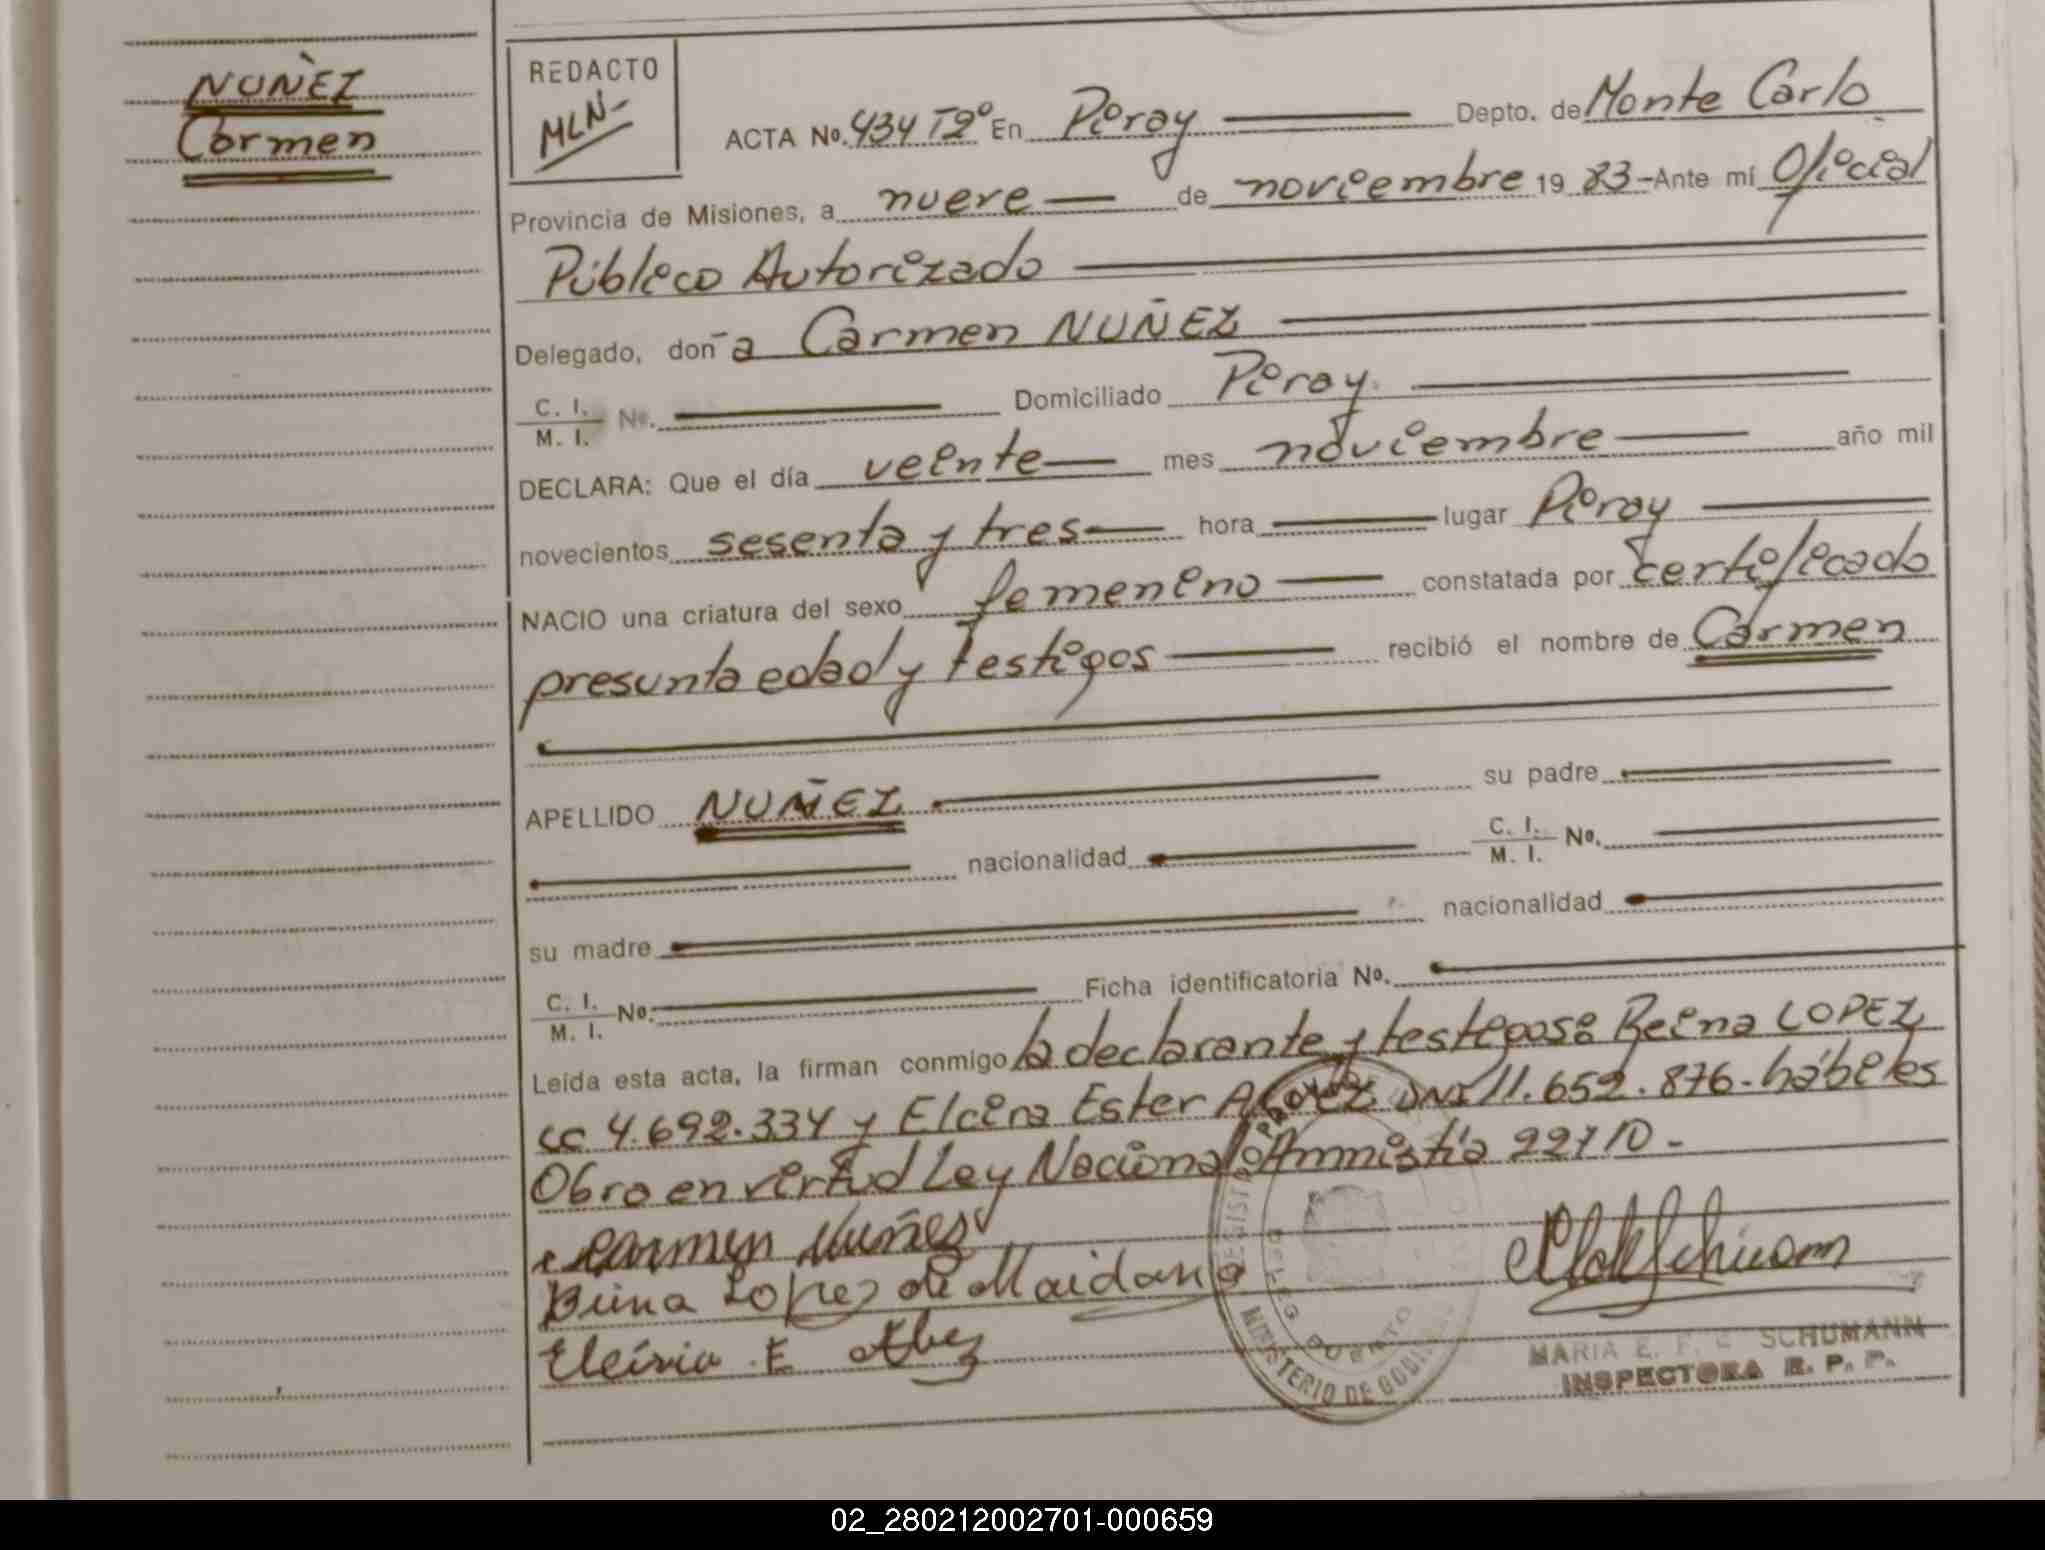 NUÑEZ
Carmen
REDACTO
MLN-
ACTA No. 434 T2º En Piray Depto. de Monte Carlo
Provincia de Misiones, a nueve de noviembre 19 83 - Ante mí Oficial
Público Autorizado
Delegado, don a Carmen NUÑEZ
C. I.
M. I. No. Domiciliado Piray
DECLARA: Que el día veinte mes noviembre año mil
novecientos sesenta y tres hora lugar Piray
NACIO una criatura del sexo femenino constatada por certificado
presunta edad y testigos recibió el nombre de Carmen
APELLIDO NUÑEZ su padre
nacionalidad C. I.
M. I. No.
su madre nacionalidad
C. I.
M. I. No. Ficha identificatoria No.
Leída esta acta, la firman conmigo la declarante y testigos: Reina LOPEZ
CC 4.692.334 y Elcira Ester DNI 11.652.876- hábiles
Obra en virtud Ley Nacional Amnistía 22710 -
Carmen Nuñes
Reina Lopez de Maidana
Elciria E.
MINISTERIO DE GOB
DELEG PUERTO
MARIA E. F. SCHUMANN
INSPECTORA R. P. P.
02_280212002701-000659